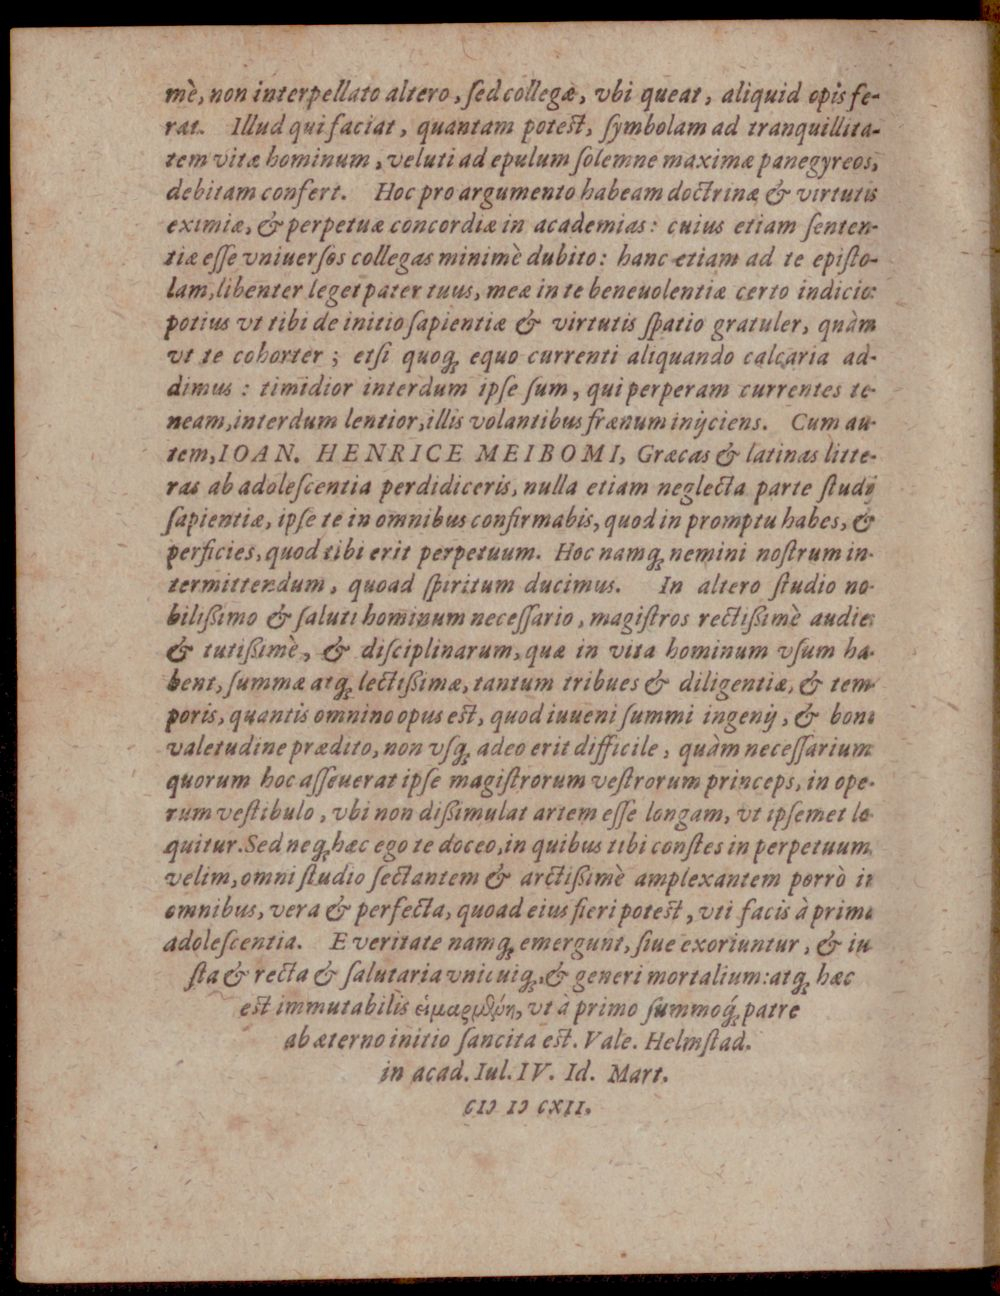 mè, non interpellato altero, ſed collegæ, vbi queat, aliquid opis fe-
rat. Illud qui faciat, quantam poteſt, ſymbolam ad tranquillita-
tem vitæ hominum, veluti ad epulum ſolemne maximæ panegyreos,
debitam confert. Hoc pro argumento habeam doctrinæ & virtutis
eximiæ, & perpetuæ concordiæ in academias: cuius etiam ſenten-
tiæ eſſe vniuerſos collegas minimè dubito: hanc etiam ad te epiſto-
lam, libenter leget pater tuus, meæ in te beneuolentiæ certo indicio:
potius vt tibi de initio ſapientiæ & virtutis ſpatio gratuler, quàm
vt te cohorter; etſi quoq́ꝫ equo currenti aliquando calcaria ad-
dimus: timidior interdum ipſe ſum, qui perperam currentes te-
neam, interdum lentior, illis volantibus frænum inijciens. Cum au-
tem, IOAN. HENRICE MEIBOMI, Græcas & latinas litte-
ras ab adoleſcentia perdidiceris, nulla etiam neglecta parte ſtudij
ſapientiæ, ipſe te in omnibus confirmabis, quod in promptu habes, &
perficies, quod tibi erit perpetuum. Hoc namqꝫ nemini noſtrum in-
termittendum, quoad ſpiritum ducimus. In altero ſtudio no-
biliſsimo & ſaluti hominum neceſſario, magiſtros rectiſsimè audies
& tutiſsimè, & diſciplinarum, quæ in vita hominum vſum ha-
bent, ſummæ atqꝫ lectiſsimæ, tantum tribues & diligentiæ, & tem-
poris, quantis omnino opus eſt, quod iuueni ſummi ingenij, & bona
valetudine prædito, non vſqꝫ adeo erit difficile, quàm neceſſarium:
quorum hoc aſſeuerat ipſe magiſtrorum veſtrorum princeps, in ope-
rum veſtibulo, vbi non diſsimulat artem eſſe longam, vt ipſemet lo-
quitur. Sed neqꝫ hæc ego te doceo, in quibus tibi conſtes in perpetuum
velim, omni ſtudio ſectantem & arctiſsimè amplexantem porrò in
omnibus, vera & perfecta, quoad eius fieri poteſt, vti facis à prima
adoleſcentia. E veritate namqꝫ emergunt, ſiue exoriuntur, & iu
ſta & recta & ſalutaria vnicuiqꝫ, & generi mortalium: atqꝫ hæc
eſt immutabilis εἱμαρμένη, vt à primo ſummoq́ꝫ patre
ab æterno initio ſancita eſt. Vale. Helmſtad.
in acad. Iul. IV. Id. Mart.
CIↃ IↃ CXII.